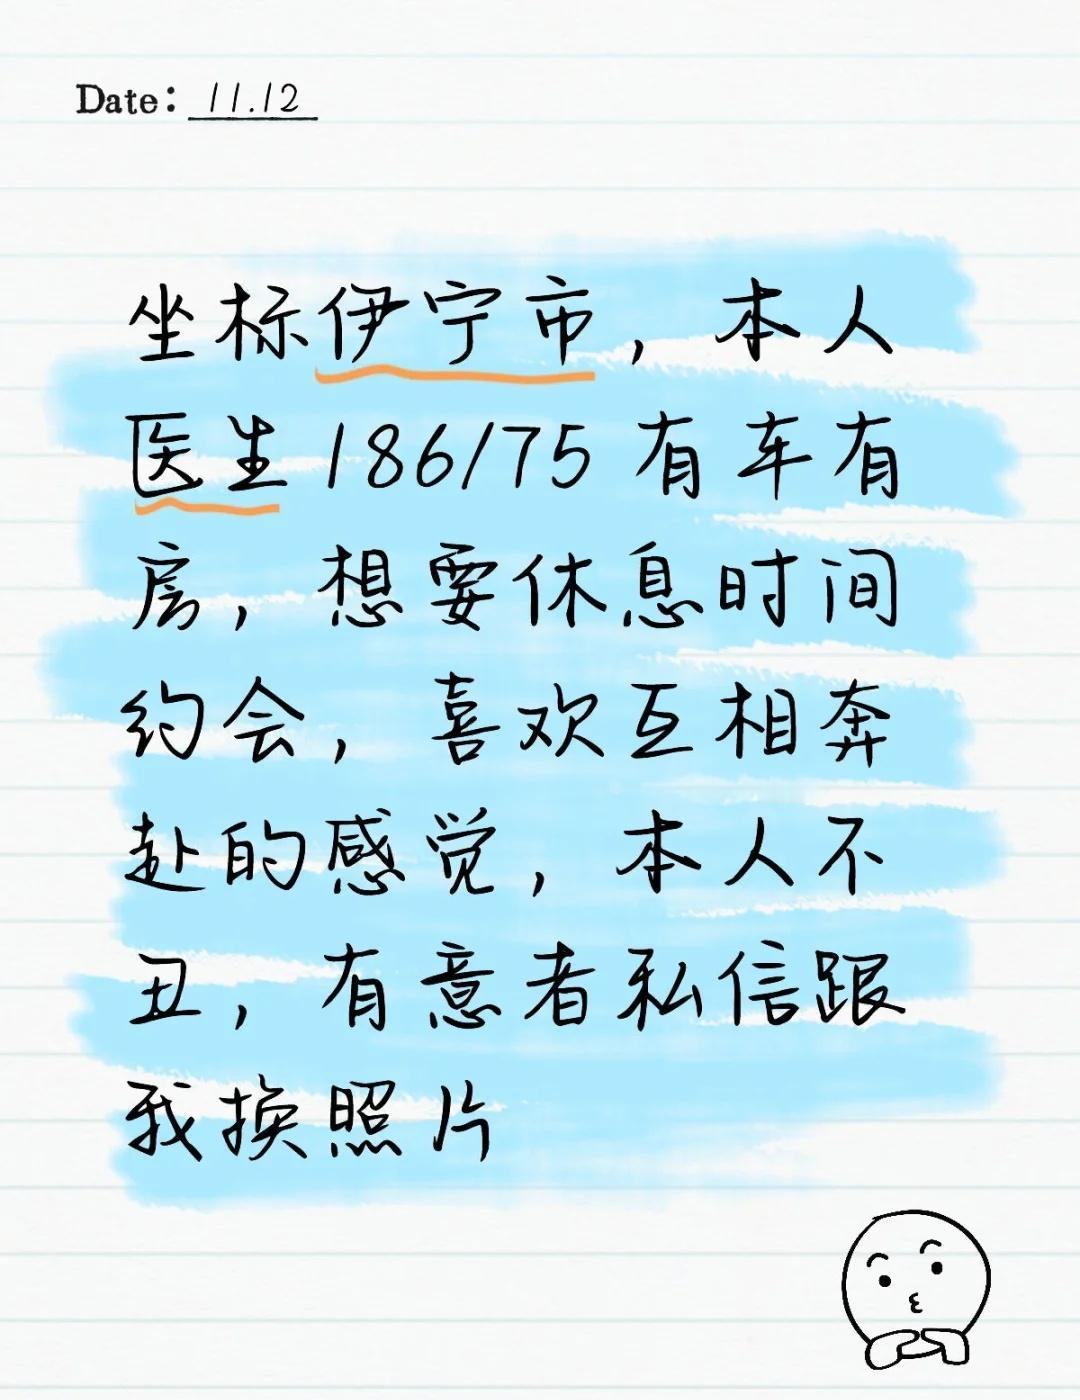 Date: 11.12
坐标伊宁市，本人
医生186/75有车有
房，想要休息时间
约会，喜欢互相奔
赴的感觉，本人不
丑，有意者私信跟
我换照片